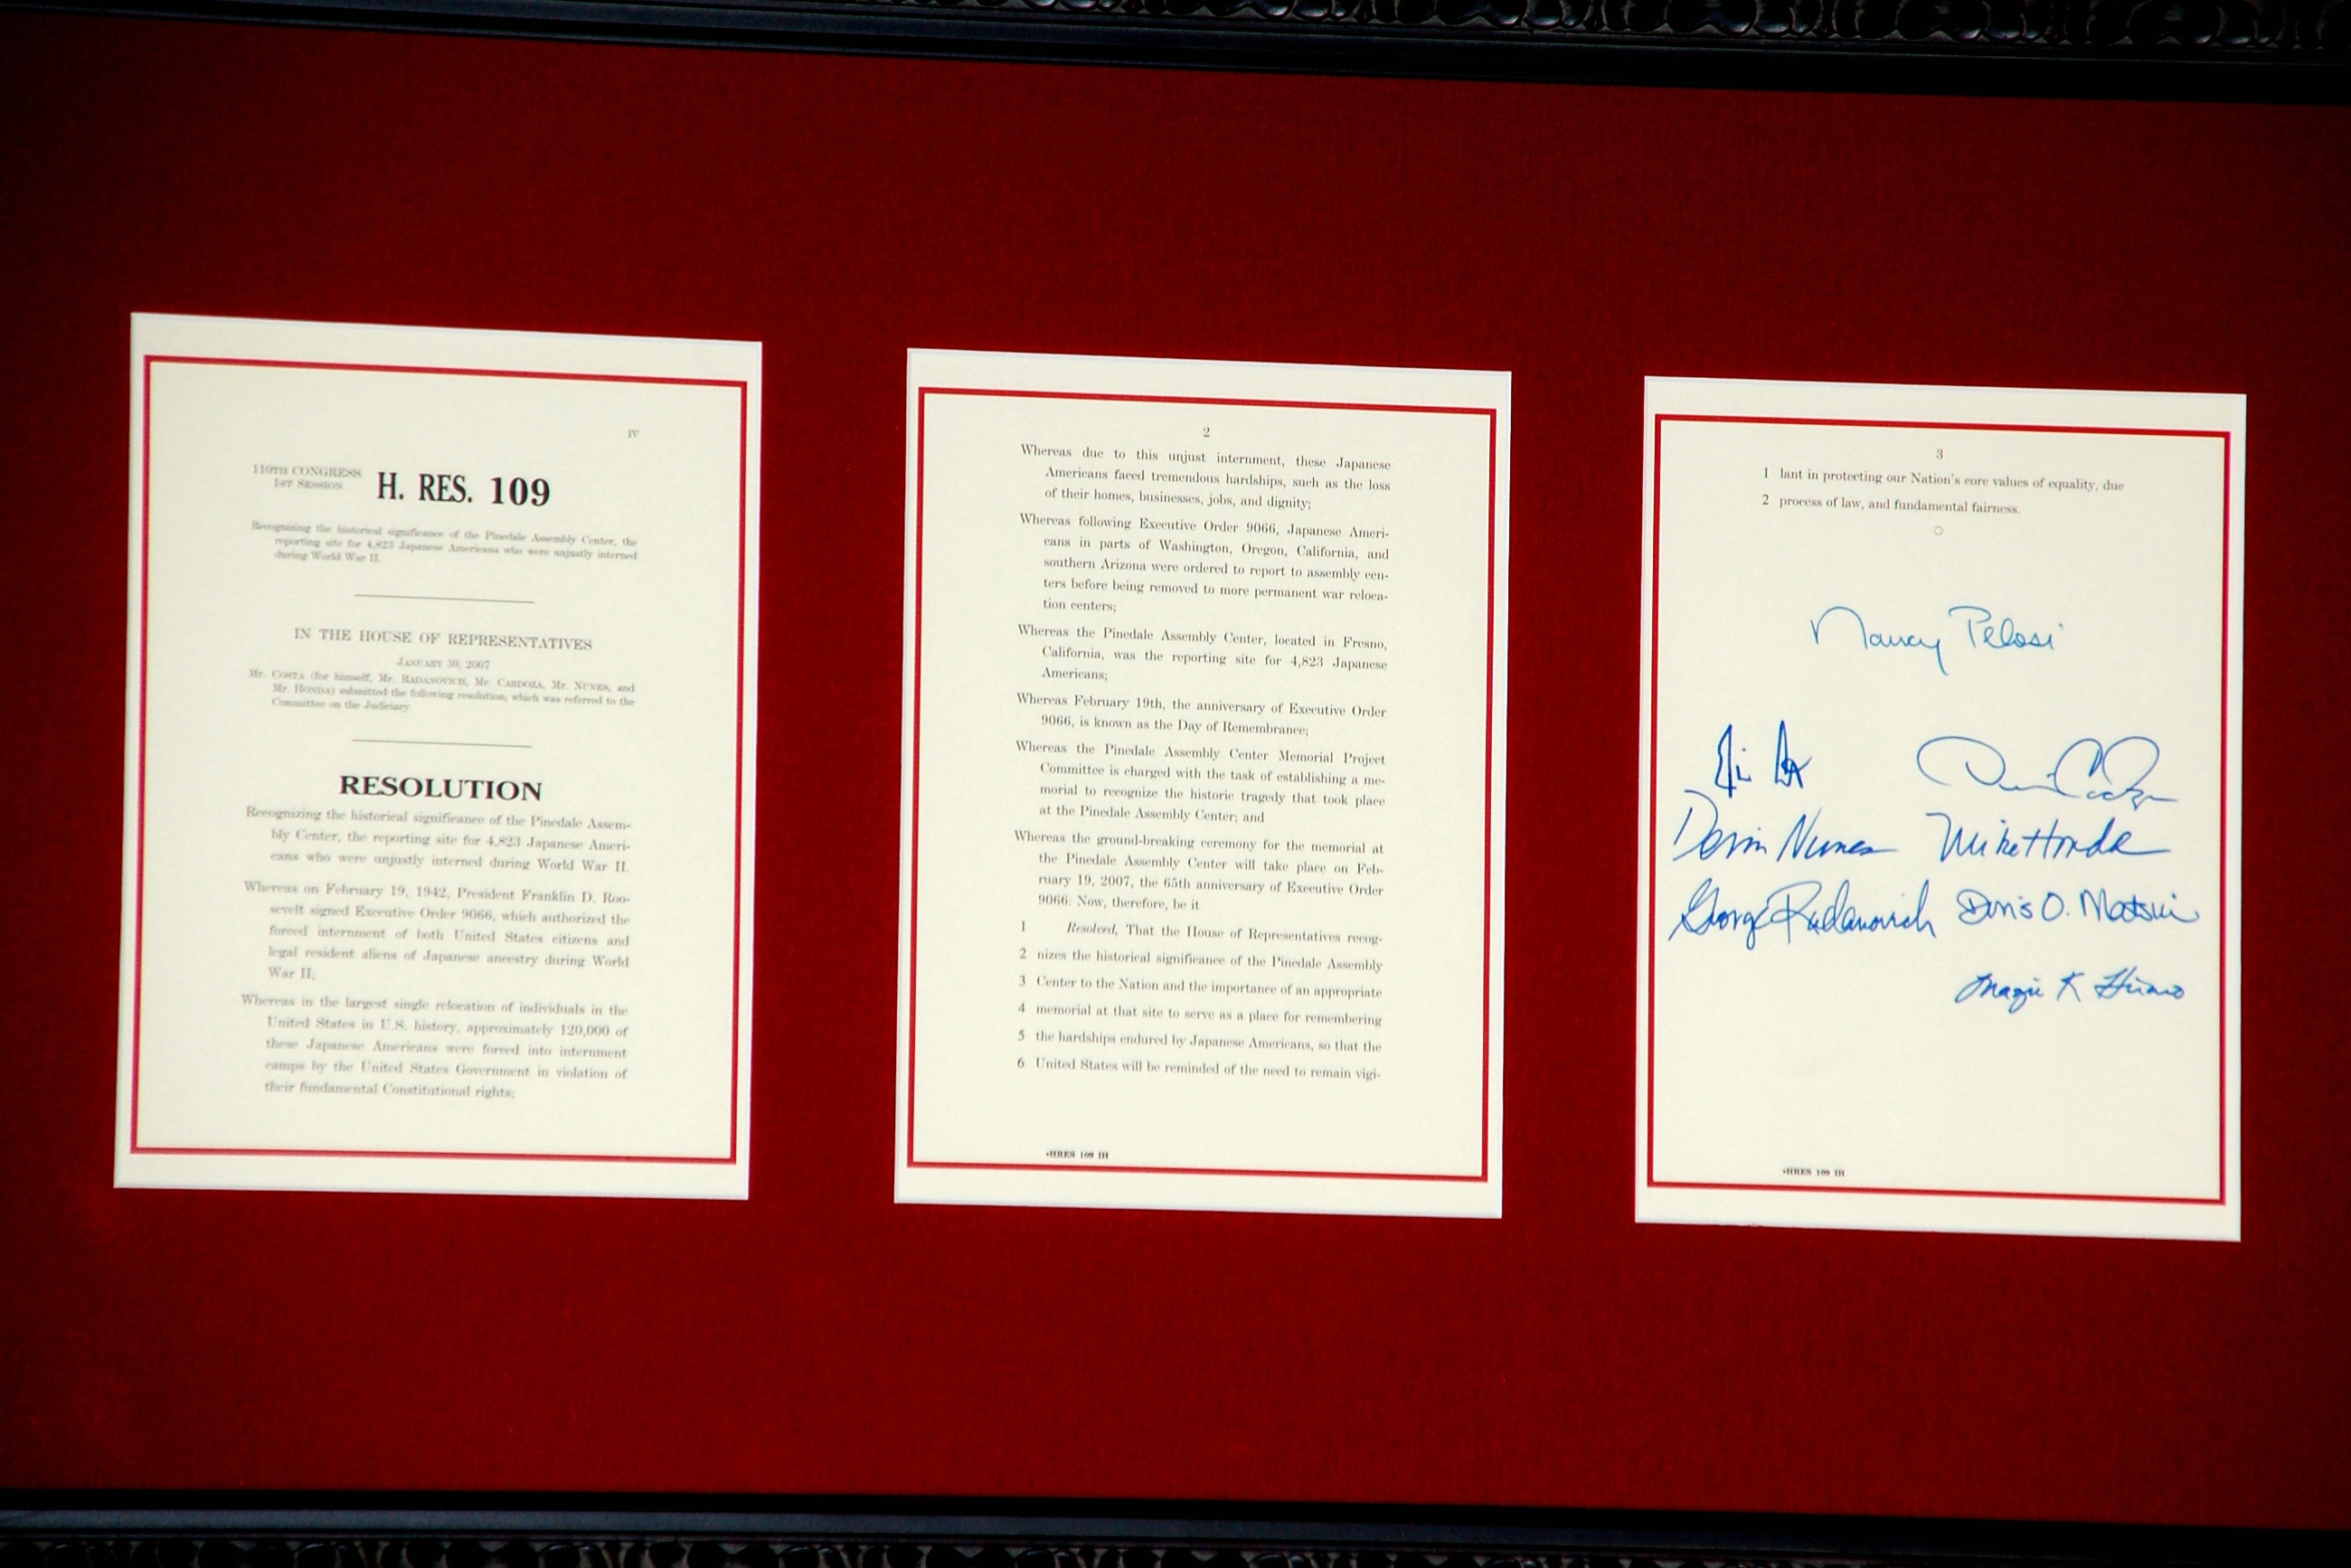 IV
110TH CONGRESS
1ST SESSION
H. RES. 109
Recognizing the historical significance of the Pinedale Assembly Center, the
reporting site for 4,823 Japanese Americans who were unjustly interned
during World War II.
IN THE HOUSE OF REPRESENTATIVES
JANUARY 30, 2007
Mr. COSTA (for himself, Mr. RADANOVICH, Mr. CARDOZA, Mr. NUNES, and
Mr. HONDA) submitted the following resolution; which was referred to the
Committee on the Judiciary
RESOLUTION
Recognizing the historical significance of the Pinedale Assem-
bly Center, the reporting site for 4,823 Japanese Ameri-
cans who were unjustly interned during World War II.
Whereas on February 19, 1942, President Franklin D. Roo-
sevelt signed Executive Order 9066, which authorized the
forced internment of both United States citizens and
legal resident aliens of Japanese ancestry during World
War II;
Whereas in the largest single relocation of individuals in the
United States in U.S. history, approximately 120,000 of
these Japanese Americans were forced into internment
camps by the United States Government in violation of
their fundamental Constitutional rights;
2
Whereas due to this unjust internment, these Japanese
Americans faced tremendous hardships, such as the loss
of their homes, businesses, jobs, and dignity;
Whereas following Executive Order 9066, Japanese Ameri-
cans in parts of Washington, Oregon, California, and
southern Arizona were ordered to report to assembly cen-
ters before being removed to more permanent war reloca-
tion centers;
Whereas the Pinedale Assembly Center, located in Fresno,
California, was the reporting site for 4,823 Japanese
Americans;
Whereas February 19th, the anniversary of Executive Order
9066, is known as the Day of Remembrance;
Whereas the Pinedale Assembly Center Memorial Project
Committee is charged with the task of establishing a me-
morial to recognize the historic tragedy that took place
at the Pinedale Assembly Center; and
Whereas the ground-breaking ceremony for the memorial at
the Pinedale Assembly Center will take place on Feb-
ruary 19, 2007, the 65th anniversary of Executive Order
9066: Now, therefore, be it
1 Resolved, That the House of Representatives recog-
2 nizes the historical significance of the Pinedale Assembly
3 Center to the Nation and the importance of an appropriate
4 memorial at that site to serve as a place for remembering
5 the hardships endured by Japanese Americans, so that the
6 United States will be reminded of the need to remain vigi-
•HRES 109 IH
3
1 lant in protecting our Nation's core values of equality, due
2 process of law, and fundamental fairness.
Nancy Pelosi
Devin Nunes Mike Honda
George Radanovich Doris O. Matsui
Mazie K Hirono
•HRES 109 IH